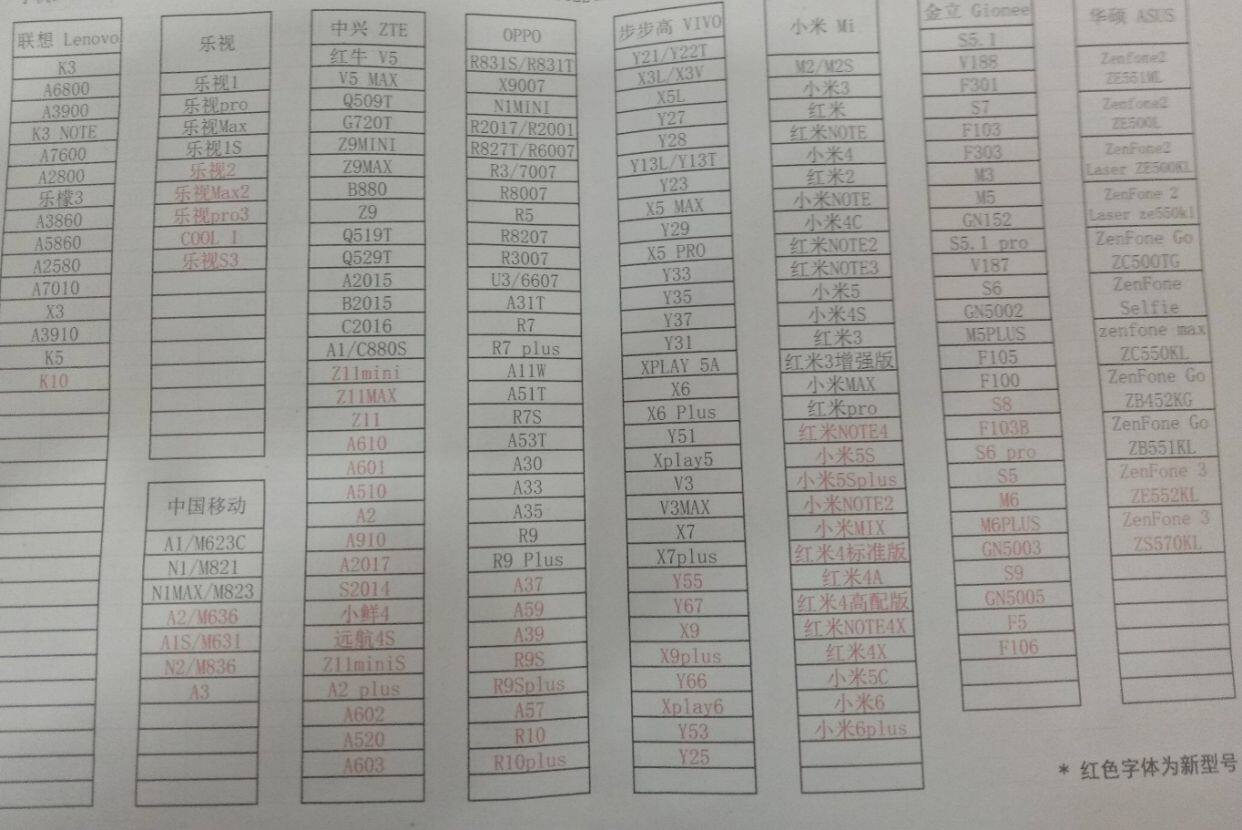 联想 Lenovo
K3
A6800
A3900
K3 NOTE
A7600
A2800
乐檬3
A3860
A5860
A2580
A7010
X3
A3910
K5
K10
乐视
乐视1
乐视pro
乐视Max
乐视1S
乐视2
乐视Max2
乐视pro3
COOL 1
乐视S3
中国移动
A1/M623C
N1/M821
N1MAX/M823
A2/M636
A1S/M631
N2/M836
A3
中兴 ZTE
红牛 V5
V5 MAX
Q509T
G720T
Z9MINI
Z9MAX
B880
Z9
Q519T
Q529T
A2015
B2015
C2016
A1/C880S
Z11mini
Z11MAX
Z11
A610
A601
A510
A2
A910
A2017
S2014
小鲜4
远航4S
Z11miniS
A2 plus
A602
A520
A603
OPPO
R831S/R831T
X9007
N1MINI
R2017/R2001
R827T/R6007
R3/7007
R8007
R5
R8207
R3007
U3/6607
A31T
R7
R7 plus
A11W
A51T
R7S
A53T
A30
A33
A35
R9
R9 Plus
A37
A59
A39
R9S
R9Splus
A57
R10
R10plus
步步高 VIVO
Y21/Y22T
X3L/X3V
X5L
Y27
Y28
Y13L/Y13T
Y23
X5 MAX
Y29
X5 PRO
Y33
Y35
Y37
Y31
XPLAY 5A
X6
X6 Plus
Y51
Xplay5
V3
V3MAX
X7
X7plus
Y55
Y67
X9
X9plus
Y66
Xplay6
Y53
Y25
小米 Mi
M2/M2S
小米3
红米
红米NOTE
小米4
红米2
小米NOTE
小米4C
红米NOTE2
红米NOTE3
小米5
小米4S
红米3
红米3增强版
小米MAX
红米pro
红米NOTE4
小米5S
小米5Splus
小米NOTE2
小米MIX
红米4标准版
红米4A
红米4高配版
红米NOTE4X
红米4X
小米5C
小米6
小米6plus
金立 Gionee
S5.1
V188
F301
S7
F103
F303
M3
M5
GN152
S5.1 pro
V187
S6
GN5002
M5PLUS
F105
F100
S8
F103B
S6 pro
S5
M6
M6PLUS
GN5003
S9
GN5005
F5
F106
华硕 ASUS
Zenfone2
ZE551ML
Zenfone2
ZE500L
ZenFone2
Laser ZE500KL
ZenFone 2
Laser ze550kl
ZenFone Go
ZC500TG
ZenFone
Selfie
zenfone max
ZC550KL
ZenFone Go
ZB452KG
ZenFone Go
ZB551KL
ZenFone 3
ZE552KL
ZenFone 3
ZS570KL
* 红色字体为新型号